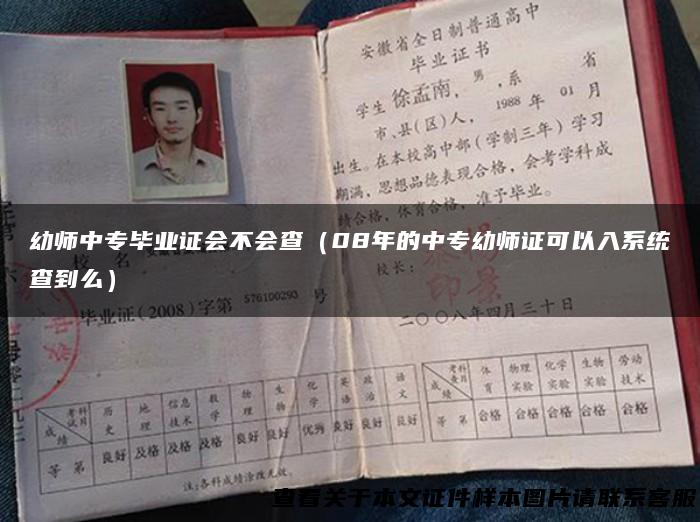 安徽省全日制普通高中
毕业证书
学生徐孟南，男，系 省
市、县(区)人，1988年01月
出生。在本校高中部（学制三年）学习
期满，思想品德表现合格，会考学科成
绩合格，体育合格，准予毕业。
幼师中专毕业证会不会查（08年的中专幼师证可以入系统
查到么）
校名
校长：
毕业证(2008)字第 576100293 号
二〇〇八年四月三十日
考试科目 历史 地理 信息技术 数学 物理 生物 化学 英语 政治 语文
成绩
等第 良好 及格 及格 及格 良好 良好 优秀 良好 良好 良好
注:各科成绩涂改无效。
考查科目 体育 物理实验 化学实验 生物实验 劳动技术
成绩
等第 合格 合格 合格 合格 合格
查看关于本文证件样本图片请联系客服